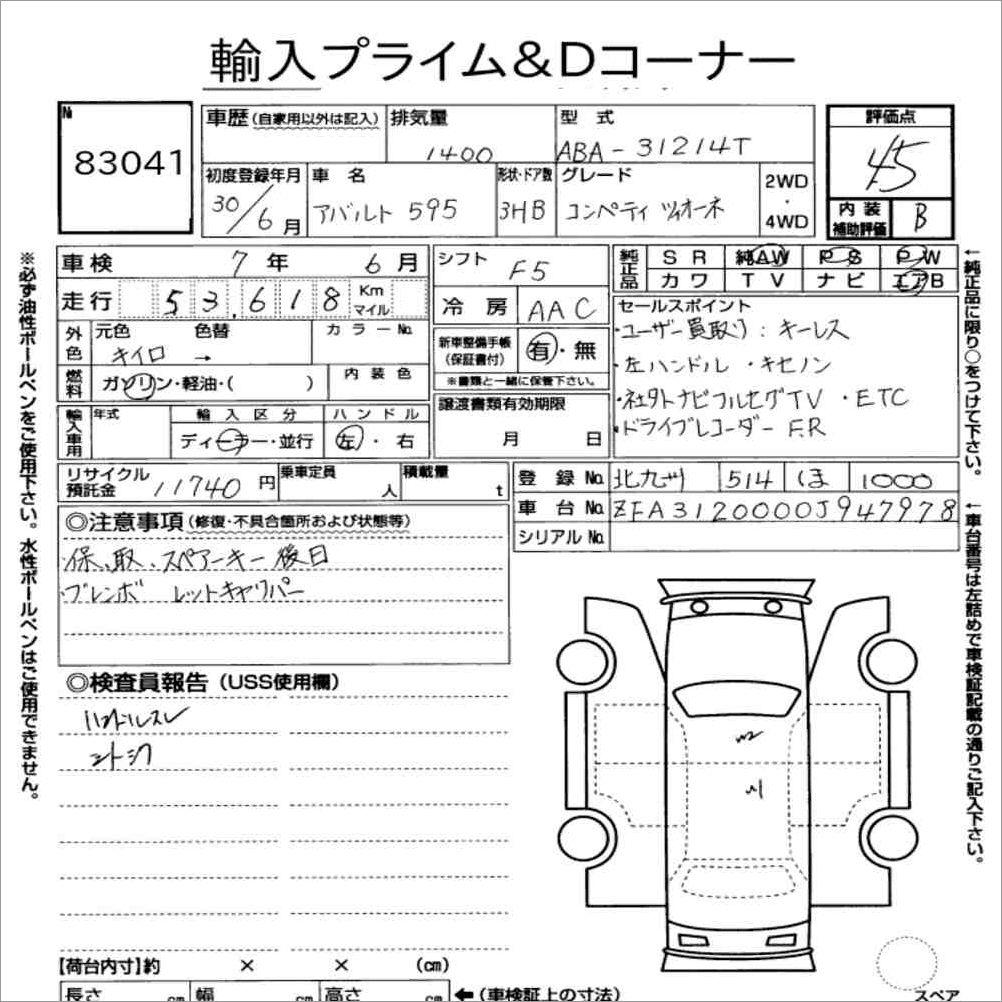 輸入プライム&Dコーナー
№ 83041
車歴 (自家用以外は記入) 排気量 1400 型式 ABA-31214T
評価点 4.5
初度登録年月 30/6月 車名 アバルト 595 形状・ドア数 3HB グレード コンペティツィオーネ 2WD・4WD
内装補助評価 B
車検 7年 6月 シフト F5
純正品 SR 純AW PS PW
カワ TV ナビ エアB
走行 53,618 Km マイル 冷房 AAC
セールスポイント
・ユーザー買取り:キーレス
・左ハンドル・キセノン
・社外ナビフルセグTV ・ETC
・ドライブレコーダー F.R
外色 元色 キイロ → 色替 カラーNo.
新車整備手帳(保証書付) 有・無
※書類と一緒に保管下さい。
燃料 ガソリン・軽油・( ) 内装色
譲渡書類有効期限 月 日
輸入車用 年式 輸入区分 ハンドル
ディーラー・並行 左・右
リサイクル預託金 11740円 乗車定員 人 積載量 t
登録No. 北九州 514 ほ 1000
車台No. ZFA3120000J947978
シリアルNo.
◎注意事項 (修復・不具合箇所および状態等)
・保、取、スペアーキー後日
・ブレンボ レットキャリパー
◎検査員報告 (USS使用欄)
ハンドルスレ
シートシワ
【荷台内寸】約 × × (cm)
長さ cm 幅 cm 高さ cm ←(車検証上の寸法)
スペア
※必ず油性ボールペンをご使用下さい。水性ボールペンはご使用できません。
←純正品に限り○をつけて下さい。
←車台番号は左詰めで車検証記載の通りご記入下さい。